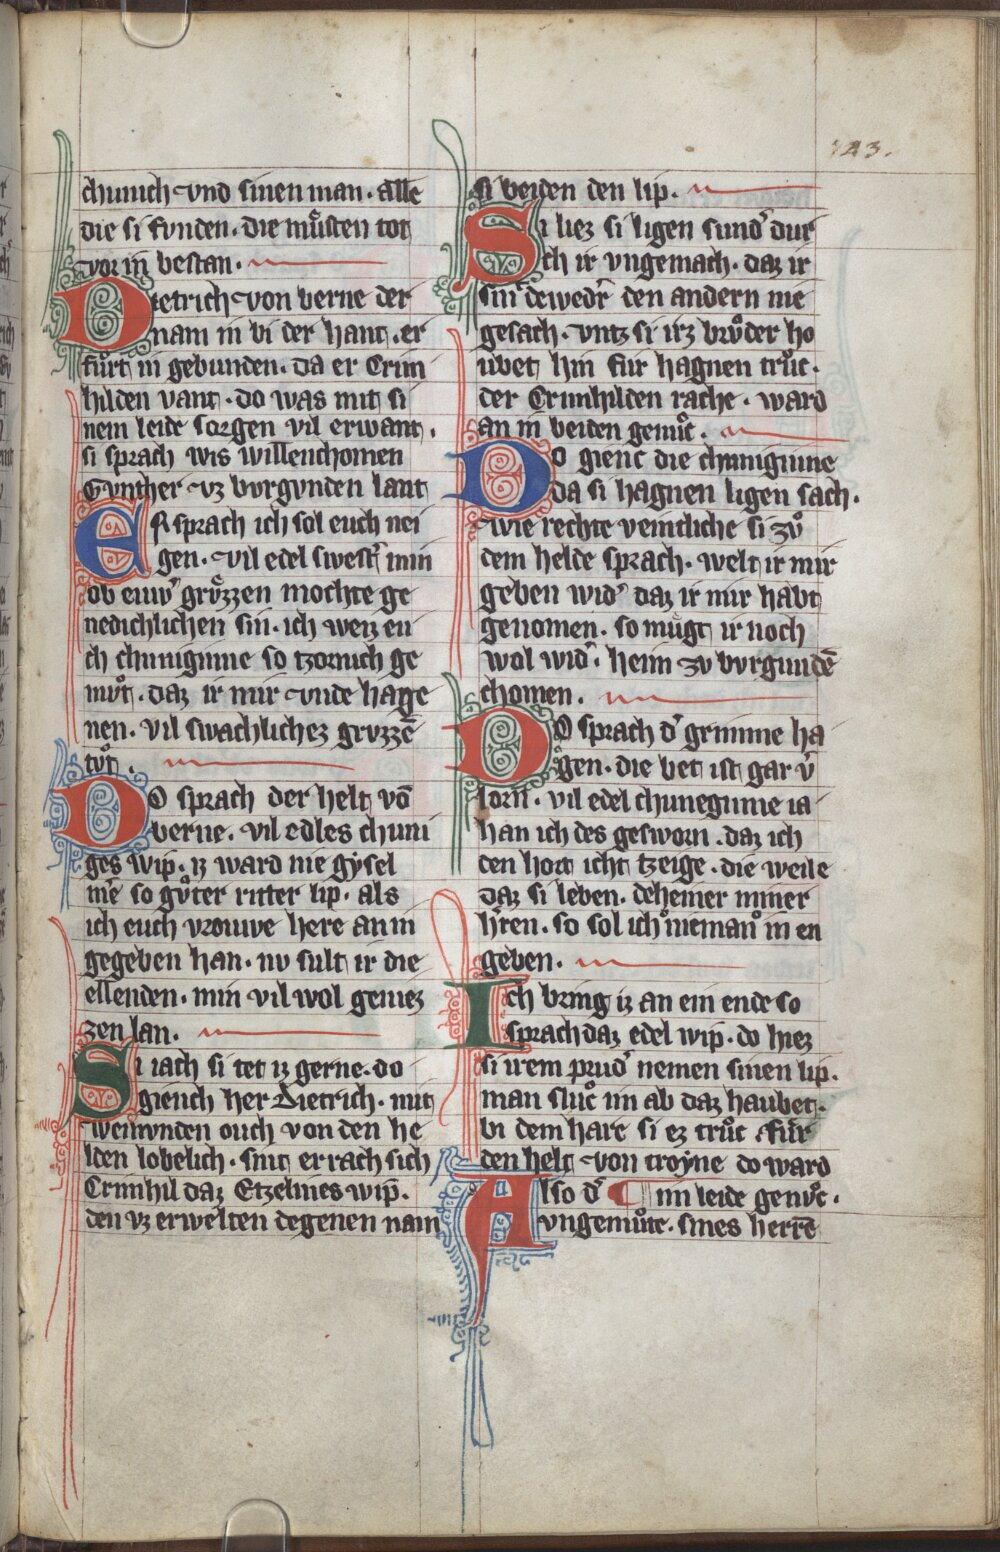 123.
chunich vnd sinen man. alle
die si fvnden. die mu̎sten tot
vor in bestan.
Dietrich von berne der
nam in bi der hant. er
fůrt in gebunden. da er Crim
hilden vant. do was mit si
nem leide sorgen vil erwant.
si sprach wis willenchomen
Gvnther vz bvrgvnden lant
Er sprach ich sol euch nei
gen. vil edel swest̾ min
ob euw̾ grůzzen mochte ge
nedichlichen sin. ich weiz eu
ch chuniginne so tzornich ge
můt. daz ir mir vnde hage
nen. vil swachlichez grvzzē
tůt.
Do sprach der helt vō
berne. vil edles chuni
ges wip. iz ward nie gysel
mē so gůter ritter lip. als
ich euch vrouwe here an in
gegeben han. nv sult ir die
ellenden. min vil wol geniez
zen lan.
Si iach si tet iz gerne. do
giench her Dietrich. mit
weinvnden ouch von den he
lden lobelich. sint er rach sich
Crimhil daz Etzelines wip.
den vz erwelten degenen nam
si beiden den lip.
Si liez si ligen sund̾ dur
ch ir vngemach. daz ir
sint dewed̾r den andern nie
gesach. vntz si irz brůder ho
ubet hin fur hagnen trůc.
der Crimhilden rache. ward
an in beiden genůc.
Do gienc die chuniginne
da si hagnen ligen sach.
wie rechte veintliche si zů
dem helde sprach. welt ir mir
geben wid̾ daz ir mir habt
genomen. so mügt ir noch
wol wid̾. heim zv bvrgundē
chomen.
Do sprach d̾ grimme ha
gen. die bet ist gar v̾
lorn. vil edel chuneginne ia
han ich des gesworn. daz ich
den hort icht tzeige. die weile
daz si leben. deheiner miner
h̾ren. so sol ich nieman in en
geben.
Ich bring iz an ein ende so
sprach daz edel wip. do hiez
si irem prud̾ nemen sinen lip.
man sluc im ab daz haubet.
bi dem hare si ez trůc. fur
den helt von troyne do ward
Also d̾ ¶ im leide genůc.
vngemůte. sines herrē